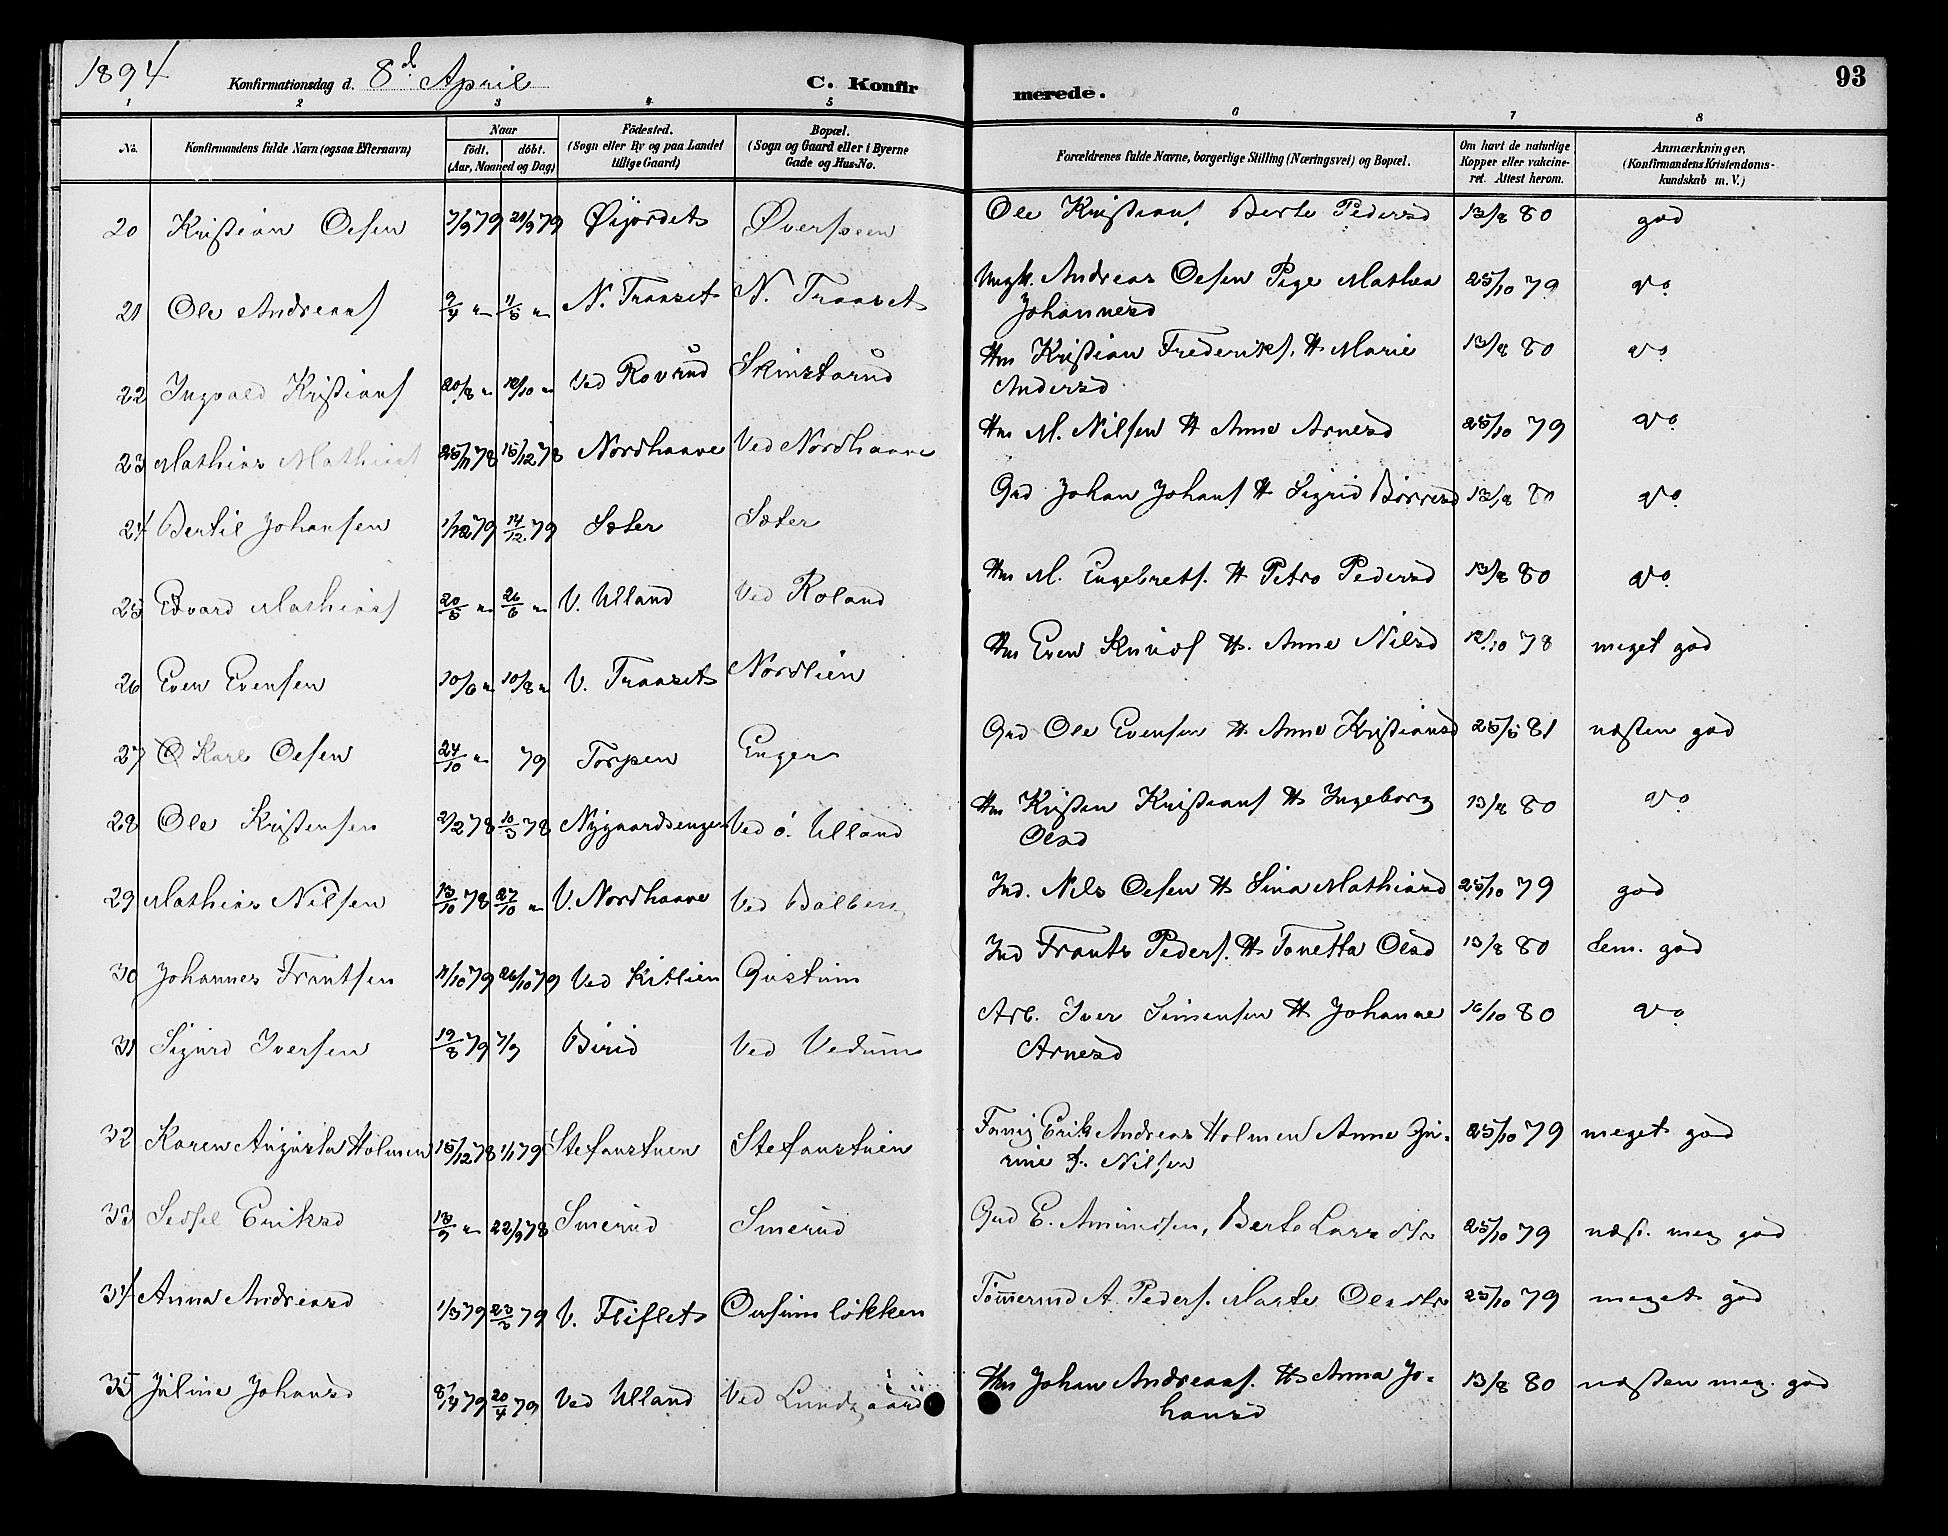 1894 Konfirmationsdag d. 8d April C. Konfirmerede. 93
1 2 3 4 5 6 7 8
No. Konfirmandens fulde Navn (ogsaa Efternavn) Naar födt. döbt. (Aar, Maaned og Dag) Födested. (Sogn eller By og paa Landet tillige Gaard) Bopæl. (Sogn og Gaard eller i Byerne Gade og Hus-No. Forældrenes fulde Navne, borgerlige Stilling (Næringsvei) og Bopæl. Om havt de naturlige Kopper eller vakcineret. Attest herom. Anmærkninger, (Konfirmandens Kristendomskundskab m. V.)
20 Kristian Olsen 7/9 79 21/9 79 Øijordet Øversveen Ole Kristians Berte Pedersd 13/8 80 god
21 Ole Andreass 9/4 " 11/5 " N. Traaset N. Traaset Ungk. Andreas Olsen Pige Mathea
Johannesd 25/10 79 do
22 Ingvald Kristians 20/8 " 12/10 " Ved Rovrud Skinstarud Hm Kristian Frederiks. H Marie
Andersd 13/8 80 do
23 Mathias Mathias 25/11 78 15/12 78 Nordhaave Ved Nordhaave Hm M. Nilsen H Anne Arnesd 25/10 79 do
24 Bertil Johansen 1/12 79 14/12 79 Sæter Sæter Grd Johan Johans H Sigrid 13/8 80 do
25 Edvard Mathiass 20/5 " 26/6 " V. Ulland Ved Roland Hm M. Engebrets. H Petra Pedersd 13/8 80 do
26 Even Evensen 10/6 " 10/8 " V. Traaset Nordlien Hm Even Knuds H. Anne Nilsd 12/10 78 meget god
27 Karl Olsen 24/10 " 79 Torpen Enger Grd Ole Evensen H. Anne Kristiansd 25/5 81 næsten god
28 Ole Kristensen 2/2 78 10/3 78 Nygaardsengen Ved ö. Ulland Hm Kristen Kristians H Ingeborg
Olsd 13/8 80 do
29 Mathias Nilsen 13/10 78 27/10 " V. Nordhaave Ved Balberg Ind. Nils Olsen H Sina Mathiasd 25/10 79 god
30 Johannes Frantsen 11/10 79 26/10 79 Ved Kitlien Gustum Ind Frants Peders. H Tonetta Olsd 13/8 80 tem. god
31 Sigurd Iversen 19/8 79 7/9 Birid Ved Vedum Arb. Iver Simensen H Johanne
Arnesd 16/10 80 do
32 Karen Augusta Holmen 15/12 78 1/1 79 Stefanstuen Stefanstuen Erik Andreas Holmen Anne Ju-
rine f. Nilsen 25/10 79 meget god
33 Sedsel Eriksd 13/9 " 22/9 78 Smerud Smerud Grd E. Amundsen, Berte Larsdtr 25/10 79 næst. meg god
34 Anna Andreasd 1/3 79 23/3 79 V. Fliflet Olsumlökken A. Peders. Marte Olsdtr 25/10 79 meget god
35 Juline Johansd 8/4 79 20/4 79 Ved Ulland Ved Lundgaard Hm Johan Andreass. H Anna Jo-
hansd 13/8 80 næsten meg. god